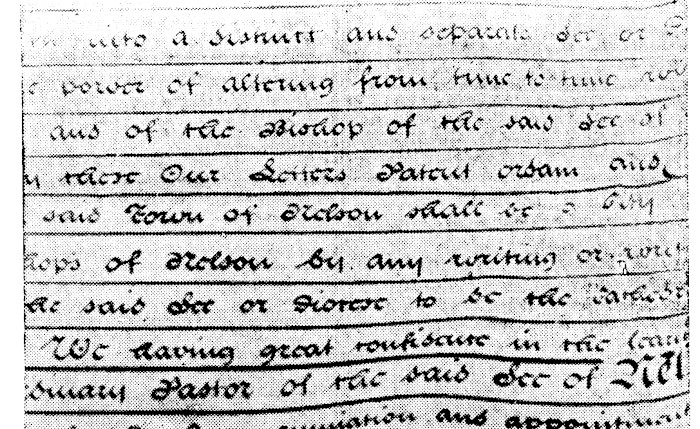 into a distinct and separate See or
power of altering from time to time
and of the Bishop of the said See of
these Our Letters Patent ordain and
said Town of Nelson shall be a City
of Nelson by any writing or
the said See or Diocese to be the Cathedral
We having great confidence in the
Pastor of the said See of
and appointment